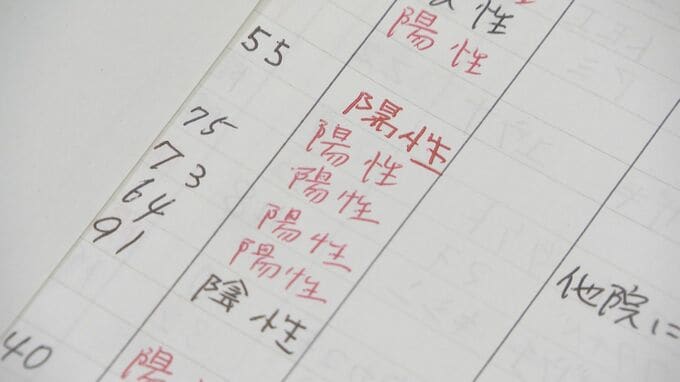 性
陽性
55 陽性
陽性
75 陽性
73 陽性
64 陽性
91 陰性
他院に
40
陽